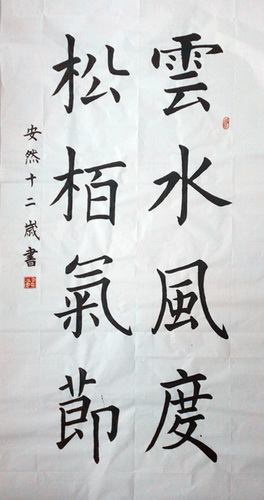 雲水風度
松栢氣節
安然十二歲書